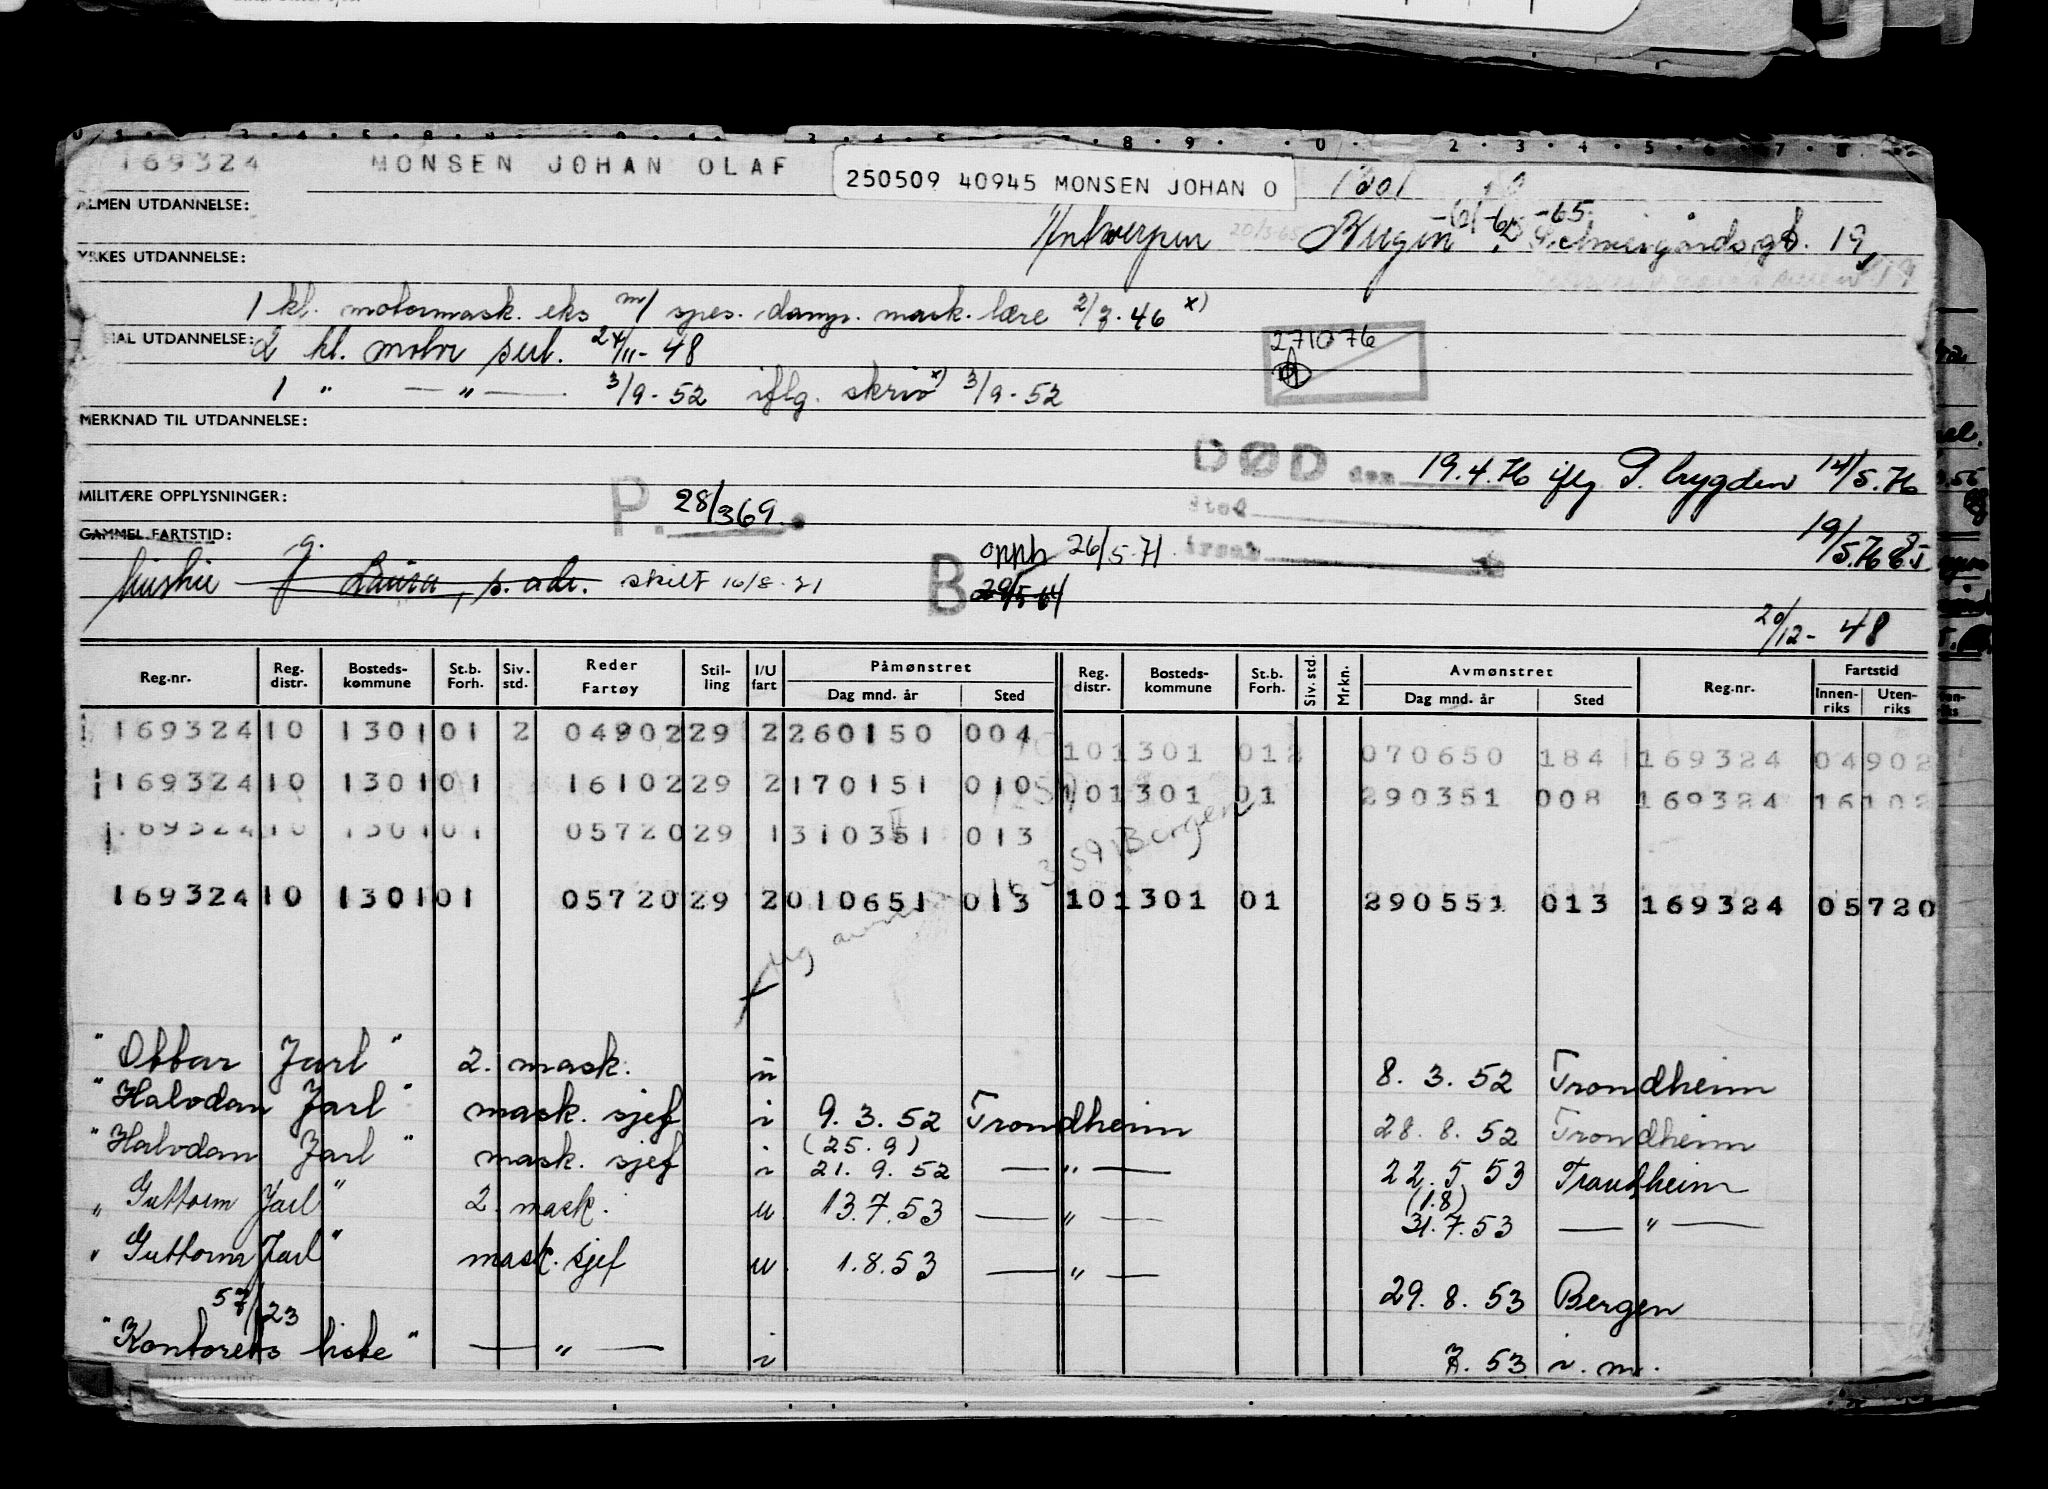 169324 MONSEN JOHAN OLAF 250509 40945 MONSEN JOHAN O 1301
ALMEN UTDANNELSE: -61 -62 -65
Antwerpen 19
YRKES UTDANNELSE:
1 kl. motormask. eks m/ spes. damp. mask. lære 2/3-46 x)
SIAL UTDANNELSE: 2 kl. motor sert. 24/11-48
271076
1 " — " — 3/9-52 iflg. skriv x) 3/9-52
MERKNAD TIL UTDANNELSE:
DØD den 19.4.76 iflg 14/5.76
MILITÆRE OPPLYSNINGER: P. 28/369
Sted
GAMMEL FARTSTID: g.
Årsak 19/5.76
B opph 26/5-71
Hustru Laura, s. adr. skilt 16/8-71 29/5-64
20/12-48
Reg.nr. Reg. distr. Bosteds-kommune St.b. Forh. Siv. std. Reder Fartøy Stil-ling I/U fart Påmønstret Dag mnd. år Sted Reg. distr. Bosteds-kommune St.b. Forh. Siv. std. Mrkn. Avmønstret Dag mnd. år Sted Reg.nr. Fartstid Innen-riks Uten-riks
169324 10 1301 01 2 04902 29 2 260150 004 10 1301 012 070650 184 169324 04902
169324 10 1301 01 16102 29 2 170151 010 10 1301 01 290351 008 169324 16102
169324 10 1301 01 05720 29 1 310351 013
169324 10 1301 01 05720 29 2 010651 013 10 1301 01 290551 013 169324 05720
3 59 Bergen
"Ottar Jarl" 2. mask. u 8. 3. 52 Trondheim
"Halvdan Jarl" mask. sjef i 9. 3. 52 Trondheim 28. 8. 52 Trondheim
"Halvdan Jarl" mask. sjef i (25.9) 21. 9. 52 — " — 22. 5 53 Trondheim
"Guttorm Jarl" 2. mask. u 13.7.53 — " — (1.8) 31.7.53 — " —
"Guttorm Jarl" mask. sjef u 1.8.53 — " — 29. 8. 53 Bergen
57/23
"Kontorets liste" — " — i 7. 53 i. m.